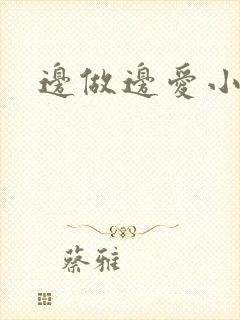 邊做邊愛小
蔡雅